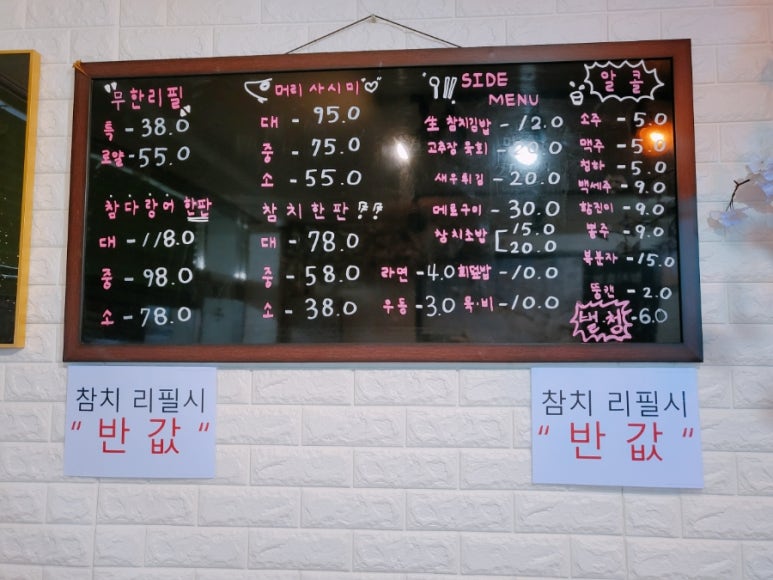 무한리필
특 - 38.0
로얄 - 55.0
참다랑어 한판
대 - 118.0
중 - 98.0
소 - 78.0
머리 사시미
대 - 95.0
중 - 75.0
소 - 55.0
참치한판
대 - 78.0
중 - 58.0
소 - 38.0
SIDE
MENU
生 참치김밥 - 12.0
고추장 육회 - 20.0
새우튀김 - 20.0
메로구이 - 30.0
참치초밥 [ 15.0
20.0
라면 - 4.0 회덮밥 - 10.0
우동 - 3.0 육·비 - 10.0
알콜
소주 - 5.0
맥주 - 5.0
청하 - 5.0
백세주 - 9.0
화진이 - 9.0
- 9.0
복분자 - 15.0
뚱캔 - 2.0
- 6.0
참치 리필시
“ 반 값 “
참치 리필시
“ 반 값 “